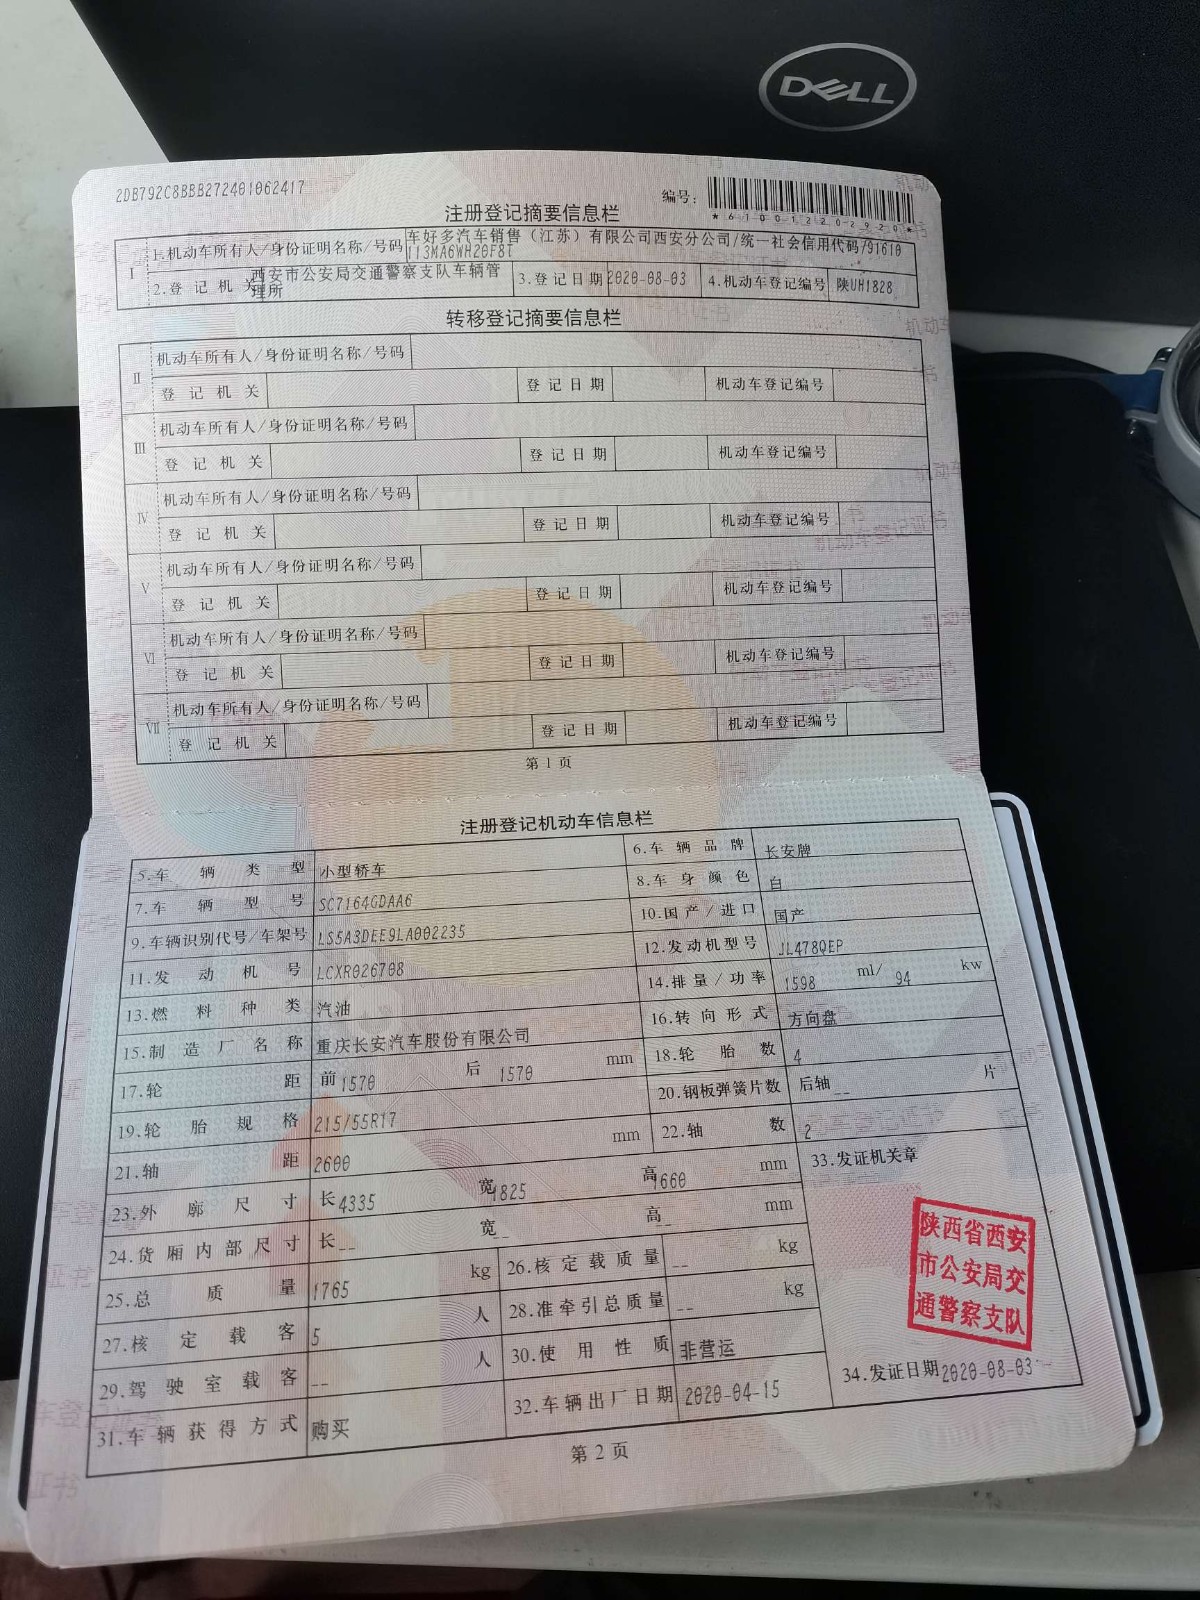 DELL
2DB792C8BBB272401062417
编号：
*610012202920*
注册登记摘要信息栏
Ⅰ
1.机动车所有人/身份证明名称/号码 车好多汽车销售（江苏）有限公司西安分公司/统一社会信用代码/91610
113MA6WH20F8T
2.登记机关 西安市公安局交通警察支队车辆管
理所
3.登记日期 2020-08-03 4.机动车登记编号 陕UH1828
转移登记摘要信息栏
Ⅱ 机动车所有人/身份证明名称/号码
登记机关 登记日期 机动车登记编号
Ⅲ 机动车所有人/身份证明名称/号码
登记机关 登记日期 机动车登记编号
Ⅳ 机动车所有人/身份证明名称/号码
登记机关 登记日期 机动车登记编号
Ⅴ 机动车所有人/身份证明名称/号码
登记机关 登记日期 机动车登记编号
Ⅵ 机动车所有人/身份证明名称/号码
登记机关 登记日期 机动车登记编号
Ⅶ 机动车所有人/身份证明名称/号码
登记机关 登记日期 机动车登记编号
第1页
注册登记机动车信息栏
5.车辆类型 小型轿车 6.车辆品牌 长安牌
7.车辆型号 SC7164GDAA6 8.车身颜色 白
9.车辆识别代号/车架号 LS5A3DEE9LA002235 10.国产/进口 国产
11.发动机号 LCXR026708 12.发动机型号 JL478QEP
13.燃料种类 汽油 14.排量/功率 1598 ml/ 94 kw
15.制造厂名称 重庆长安汽车股份有限公司 16.转向形式 方向盘
17.轮距 前1570 后 1570 mm 18.轮胎数 4
19.轮胎规格 215/55R17 20.钢板弹簧片数 后轴-- 片
21.轴距 2600 mm 22.轴数 2
23.外廓尺寸 长4335 宽1825 高1660 mm 33.发证机关章
24.货厢内部尺寸 长-- 宽- 高- mm
25.总质量 1765 kg 26.核定载质量 -- kg
27.核定载客 5 人 28.准牵引总质量 -- kg
29.驾驶室载客 -- 人 30.使用性质 非营运
31.车辆获得方式 购买 32.车辆出厂日期 2020-04-15
陕西省西安
市公安局交
通警察支队
34.发证日期 2020-08-03
第2页